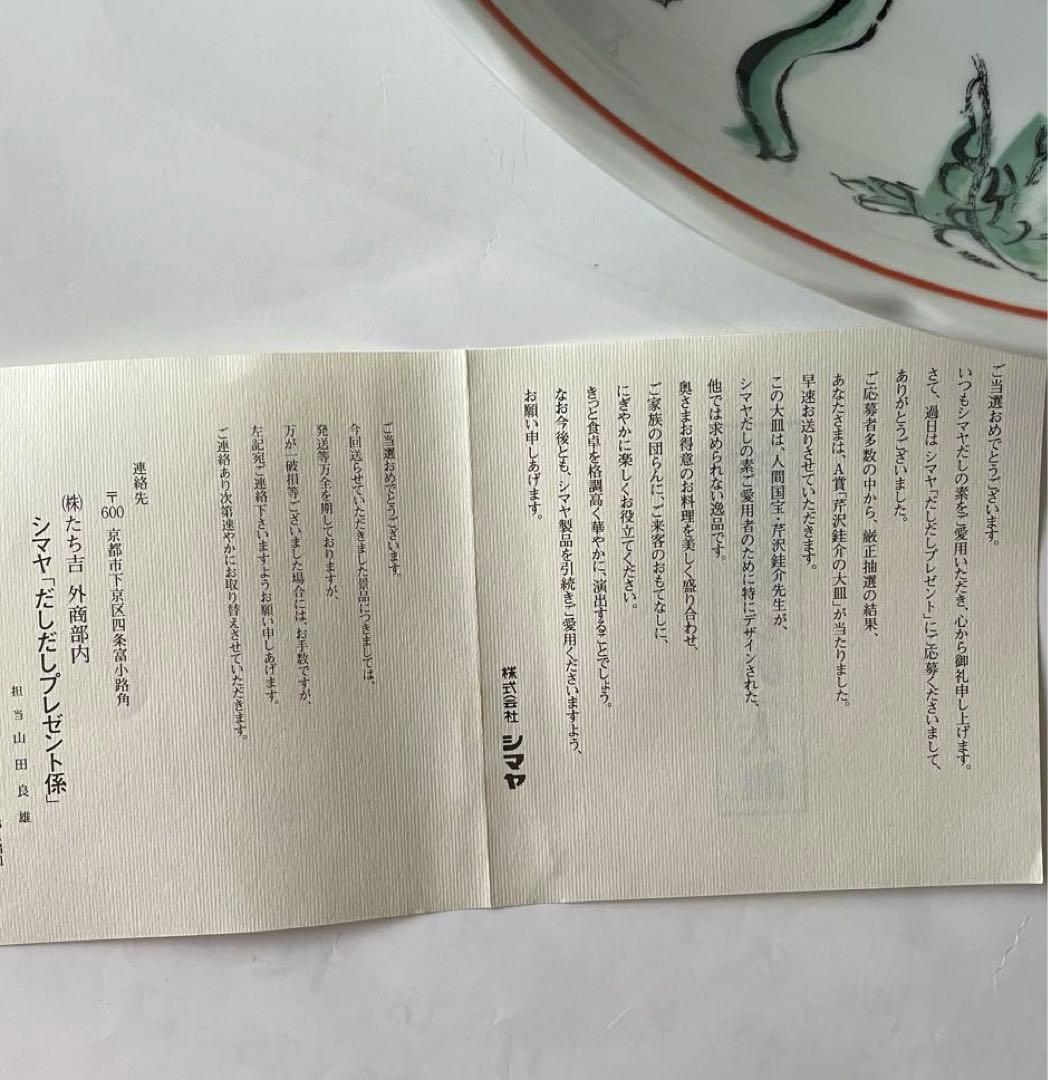 ご当選おめでとうございます。
いつもシマヤだしの素をご愛用いただき、心から御礼申し上げます。
さて、過日はシマヤ「だしだしプレゼント」にご応募くださいまして、
ありがとうございました。
ご応募者多数の中から、厳正抽選の結果、
あなたさまは、A賞「芹沢銈介の大皿」が当たりました。
早速お送りさせていただきます。
この大皿は、人間国宝・芹沢銈介先生が、
シマヤだしの素ご愛用者のために特にデザインされた、
他では求められない逸品です。
奥さまお得意のお料理を美しく盛り合わせ、
ご家族の団らんに、ご来客のおもてなしに、
にぎやかに楽しくお役立てください。
きっと食卓を格調高く華やかに、演出することでしょう。
なお今後とも、シマヤ製品を引続きご愛用くださいますよう、
お願い申しあげます。
株式会社 シマヤ
ご当選おめでとうございます。
今回送らせていただきました景品につきましては、
発送等万全を期しておりますが、
万が一破損等ございました場合には、お手数ですが、
左記宛ご連絡下さいますようお願い申しあげます。
ご連絡あり次第速やかにお取り替えさせていただきます。
連絡先
〒600 京都市下京区四条富小路角
㈱たち吉 外商部内
シマヤ「だしだしプレゼント係」
担当 山田良雄